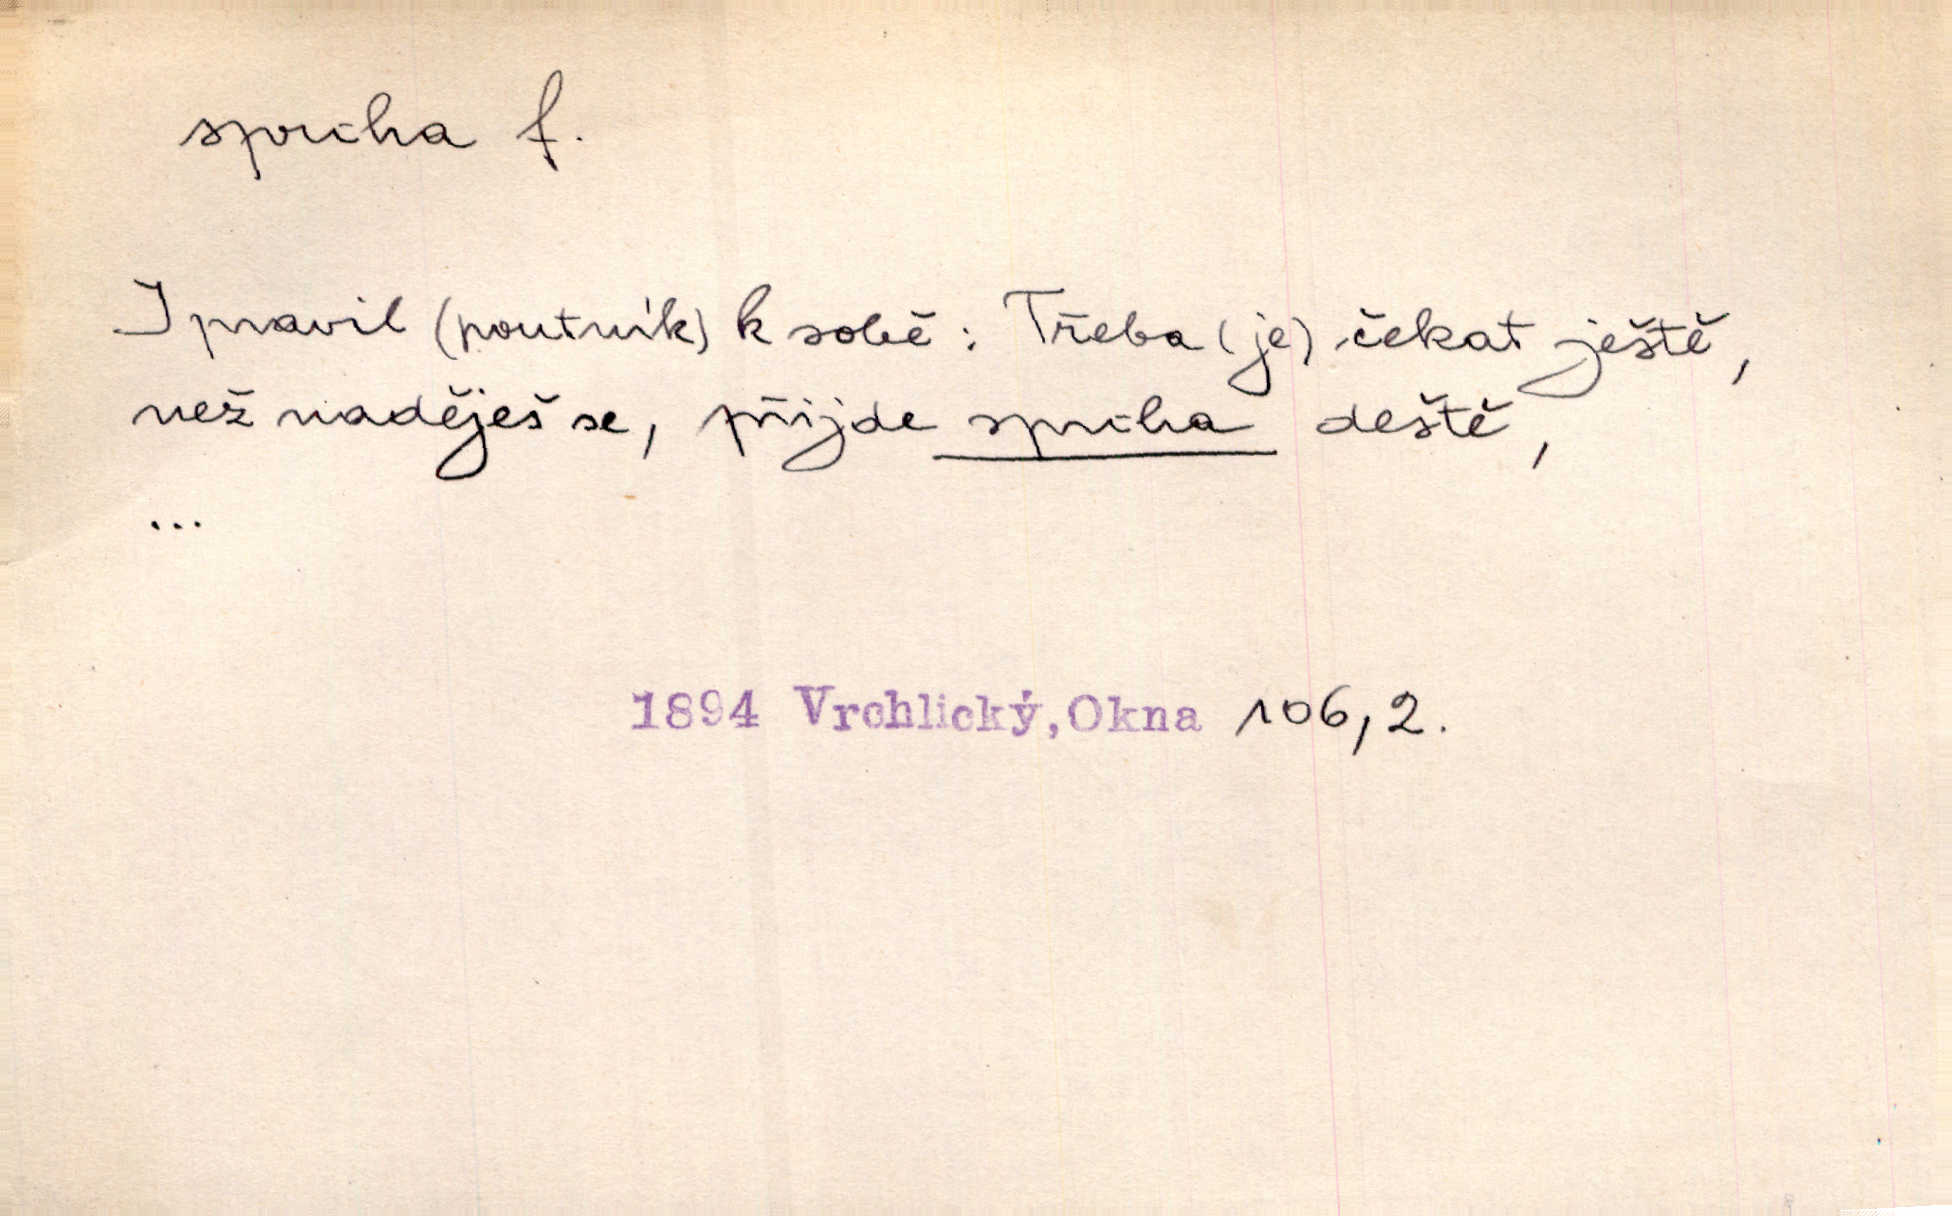 sprcha f.
I pravil (poutník) k sobě: Třeba (je) čekat ještě,
než naděješ se, přijde sprcha deště,
...
1894 Vrchlický, Okna 106, 2.